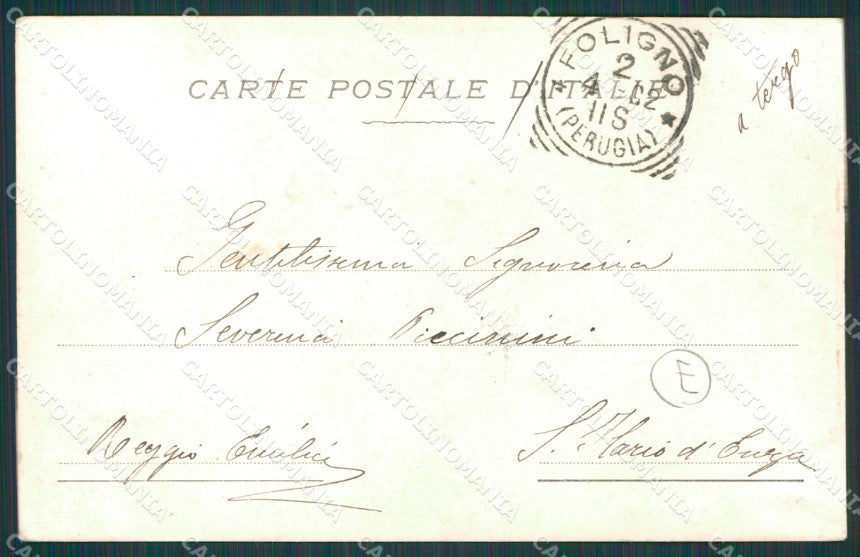 CARTE POSTALE D'ITALIE
FOLIGNO
2
4 - 02
11 S
(PERUGIA)
a tergo
Gentilissima Signorina
Severina Piccinini
E
Reggio Emilia S. Ilario d'Enza
CARTOLINOMANIA